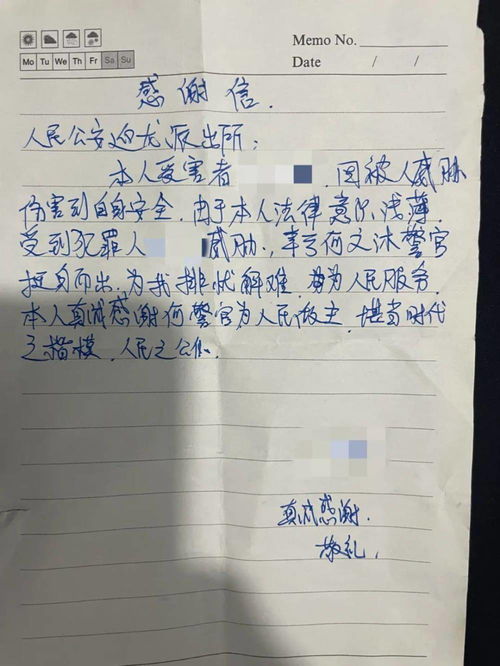 Memo No.
Mo Tu We Th Fr Sa Su
Date / /
感谢信.
人民公安迎龙派出所:
本人受害者 因被人威胁
伤害到自身安全.由于本人法律意识浅薄.
受到犯罪人 威胁.,幸亏何文沐警官
挺身而出.为我排忧解难.为人民服务.
本人真诚感谢何警官为人民做主.堪当时代
之楷模.人民之公仆.
真诚感谢.
敬礼.